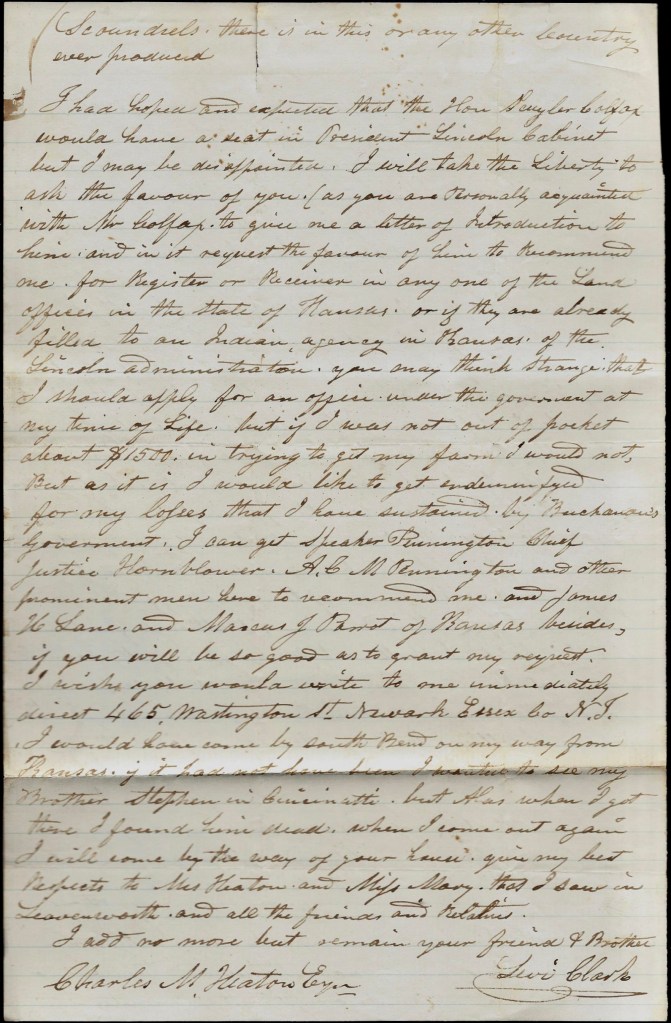 (Scoundrels. there is in this or any other Country
ever produced
I had hoped and expected that the Hon Scuyler Colfax
would have a seat in President Lincoln Cabinet
but I may be disappointed. I will take the Liberty to
ask the favour of you. (as you are Personally acquainted
with Mr Colfax. to give me a letter of Introduction to
him. and in it request the favour of him to Recommend
me. for Register or Receiver in any one of the Land
offices in the State of Kansas. or if they are already
filled to an Indian agency in Kansas. of the
Lincoln administration. you may think strange. that
I should apply for an office under the goverment at
my time of Life. but if I was not out of pocket
about $1500. in trying to get my farm I would not,
But as it is I would like to get endemnifyed
for my losses that I have sustained. by Buchanan's
Goverment. I can get Speaker Pennington Chief
Justice Hornblower. A. C M Pennington and other
prominent men here to recommend me. and James
H Lane. and Marcus J Parrot of Kansas besides,
if you will be so good as to grant my request.
I wish you would write to me immediately
direct 465. Washington St. Newark Essex Co N. J.
I would have come by South Bend on my way from
Kansas. if it had not have been I wanted to see my
Brother Stephen in Cincinatti. but Alas when I got
there I found him dead. when I come out again
I will come by the way of your house. give my best
Respects to Mrs Heaton. and Miss Mary. that I saw in
Leavenworth. and all the friends and Relatives.
I add no more but remain your friend & Brother
Levi Clark
Charles M. Heaton Esqr